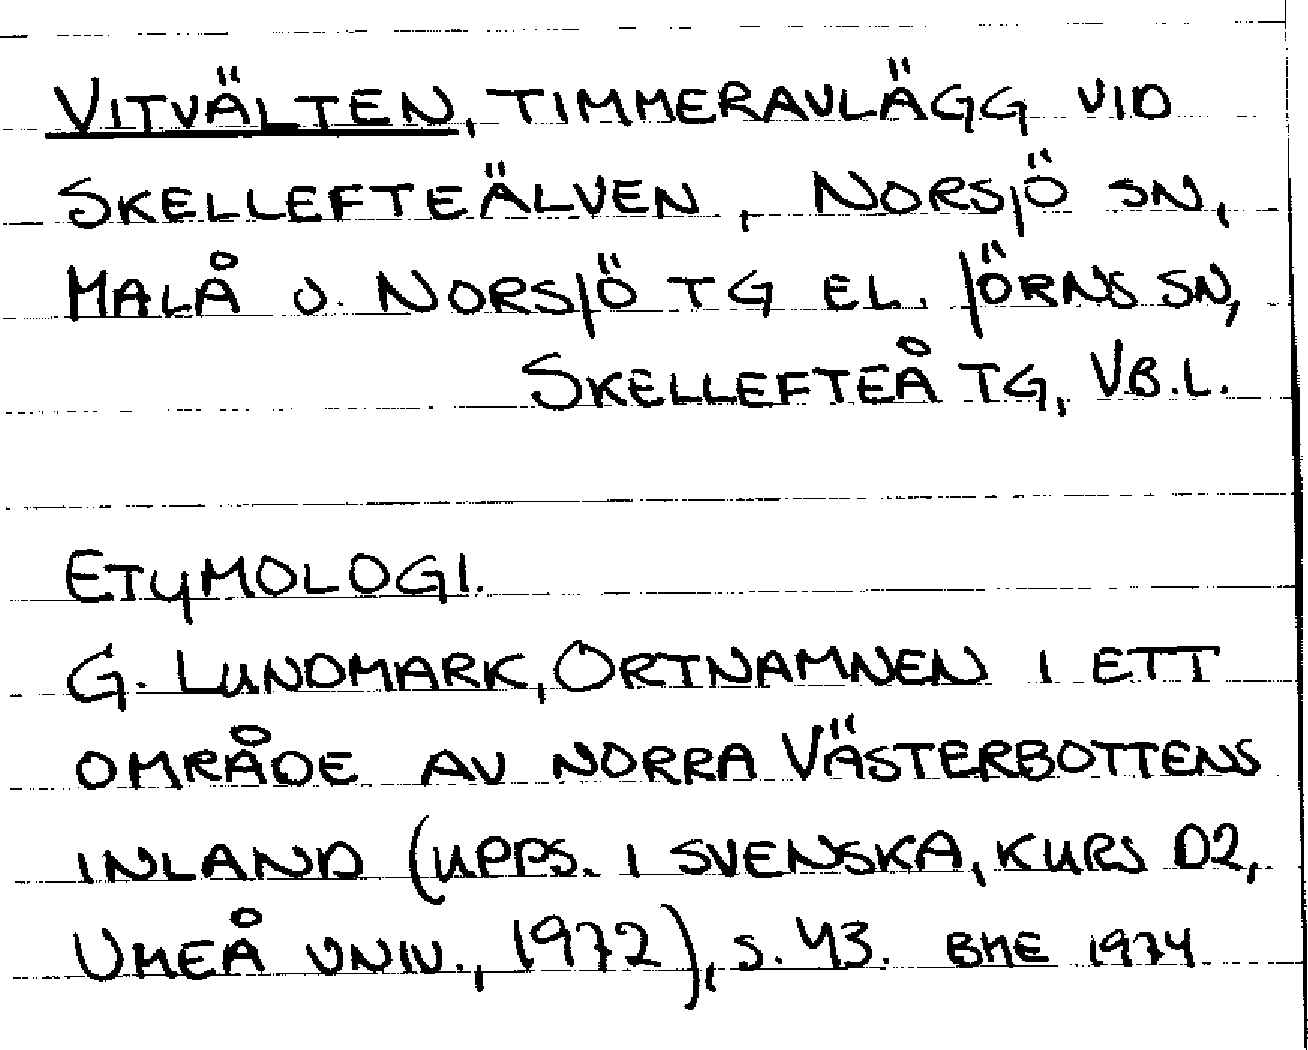 VITVÄLTEN, TIMMERAVLÄGG VID
SKELLEFTEÄLVEN, NORSJÖ SN,
MALÅ O. NORSJÖ TG EL. JÖRNS SN,
SKELLEFTEÅ TG, VB.L.
ETYMOLOGI.
G. LUNDMARK, ORTNAMNEN I ETT
OMRÅDE AV NORRA VÄSTERBOTTENS
INLAND (UPPS. I SVENSKA, KURS D2,
UMEÅ UNIV., 1972), S. 43. BME 1974